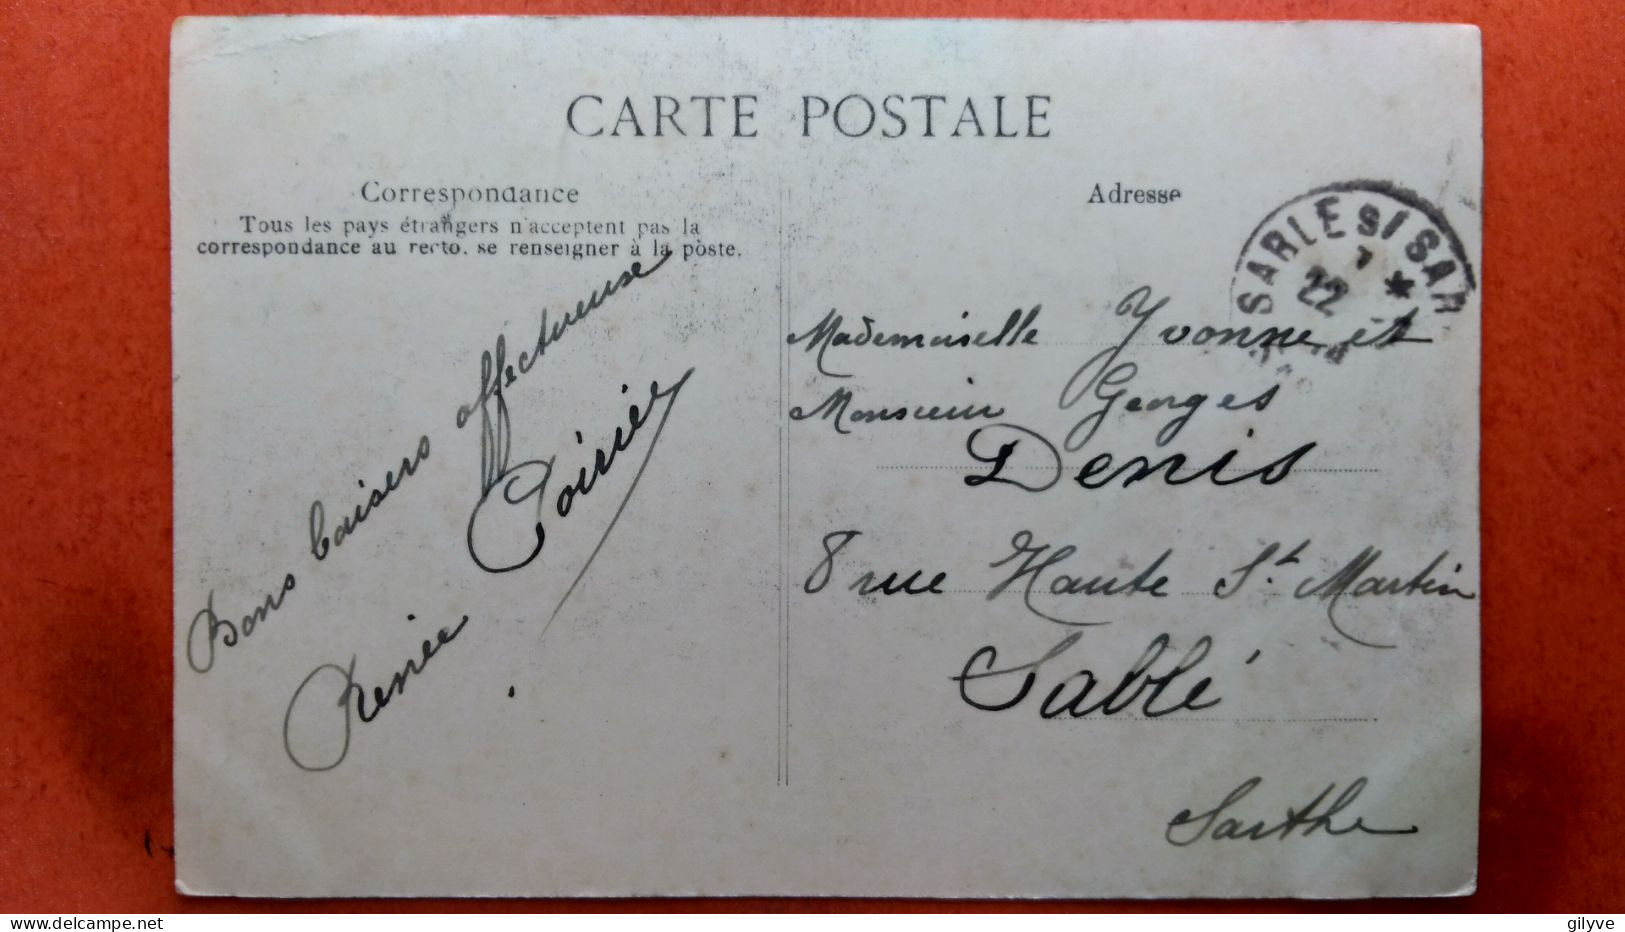 CARTE POSTALE
Correspondance
Tous les pays étrangers n'acceptent pas la
correspondance au recto. se renseigner à la poste.
Bons baisers affectueuse
Renée Poirier
Adresse
SABLE S/ SAR
22 *
Mademoiselle Yvonne et
Monsieur Georges
Denis
8 rue Haute St. Martin
Sablé
Sarthe
gilyve